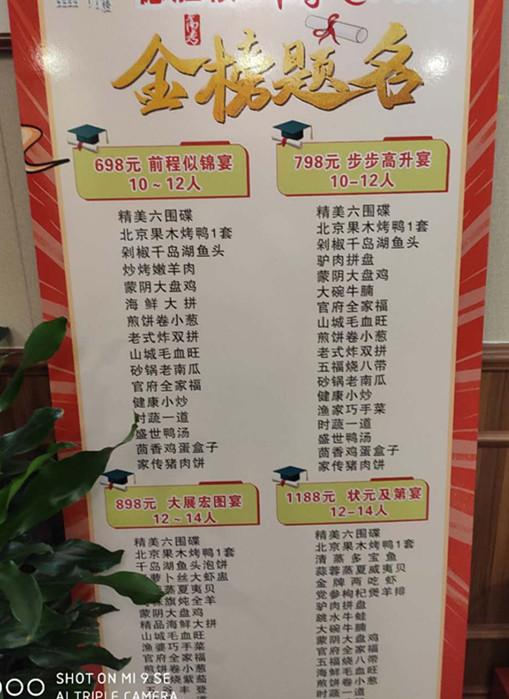 金榜题名
698元 前程似锦宴
10~12人
精美六围碟
北京果木烤鸭1套
剁椒千岛湖鱼头
炒烤嫩羊肉
蒙阴大盘鸡
海鲜大拼
煎饼卷小葱
老式炸双拼
山城毛血旺
砂锅老南瓜
官府全家福
健康小炒
时蔬一道
盛世鸭汤
茴香鸡蛋盒子
家传猪肉饼
798元 步步高升宴
10-12人
精美六围碟
北京果木烤鸭1套
剁椒千岛湖鱼头
驴肉拼盘
蒙阴大盘鸡
大碗牛腩
官府全家福
山城毛血旺
煎饼卷小葱
老式炸双拼
五福烧八带
砂锅老南瓜
健康小炒
渔家巧手菜
时蔬一道
盛世鸭汤
茴香鸡蛋盒子
家传猪肉饼
898元 大展宏图宴
12~14人
精美六围碟
北京果木烤鸭1套
千岛湖鱼头泡饼
萝卜丝大虾盅
蒸夏威夷贝
旗炖全羊
蒙阴大盘鸡
精品海鲜大拼
山城毛血旺
渔婆巧手菜
官府全家福
煎饼卷小葱
烧紫茄
1188元 状元及第宴
12-14人
精美六围碟
北京果木烤鸭1套
清蒸多宝鱼
蒜蓉蒸夏威夷贝
金牌两吃虾
党参枸杞煲羊排
驴肉拼盘
跳水牛蛙
大碗牛腩
蒙阴大盘鸡
官府全家福
五福烧八带
山城毛血旺
煎饼卷小葱
时蔬一道
SHOT ON MI 9 SE
AI TRIPLE CAMERA